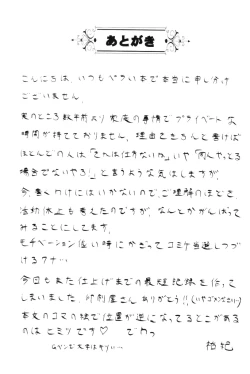 あとがき
こんにちは、いつもペラい本で本当に申し分け
ございません。
実のところ数年前より家庭の事情でプライベートな
時間が持てておりません。理由をきちんと書けば
ほとんどの人は「それは仕方ないね」いや「同人やっとる
場合でないやろ!」と言うような気はしますが、
今書くわけにはいかないので、ご理解のほどを
活動休止も考えたのですが、なんとかがんばって
みることにしてます。
モチベーション低い時にかぎってコミケ当選しつづ
けるアナ…
今回もまた仕上げまでの最短記録を作って
しまいました、印刷屋さんありがとう!!(いやゴメンなさい)
本文のコマの絵で位置が逆になってるとこがある
のはヒミツです♡ でわっ
Gペンだ文字は